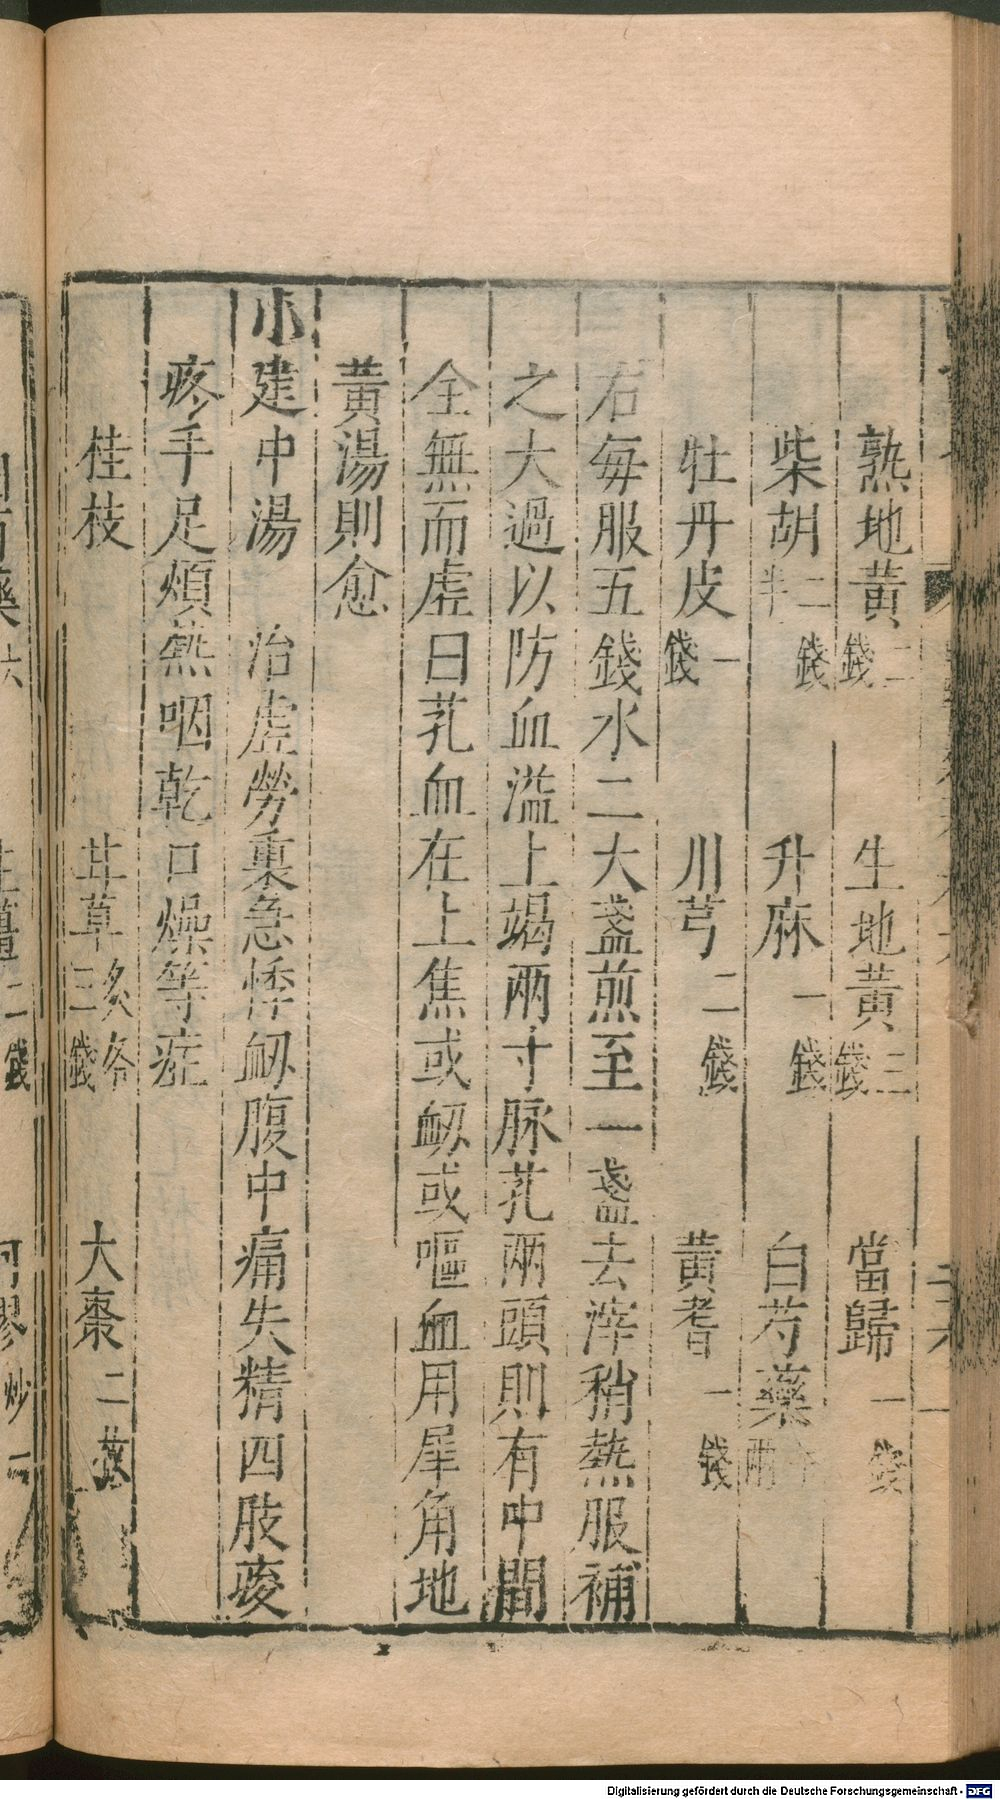 熟地黃二錢 生地黃三錢 當歸一錢
柴胡二錢半 升麻一錢 白芍藥半兩
牡丹皮一錢 川芎二錢 黃耆一錢
右每服五錢水二大盞煎至一盞去滓稍熱服補
之大過以防血溢上竭兩寸脉芤兩頭則有中間
全無而虛曰芤血在上焦或衂或嘔血用犀角地
黃湯則愈
小建中湯 治虛勞裏急悸衂腹中痛失精四肢痠
疼手足煩熱咽乾口燥等症
桂枝 甘草炙各三錢 大棗二枚
Digitalisierung gefördert durch die Deutsche Forschungsgemeinschaft - DFG